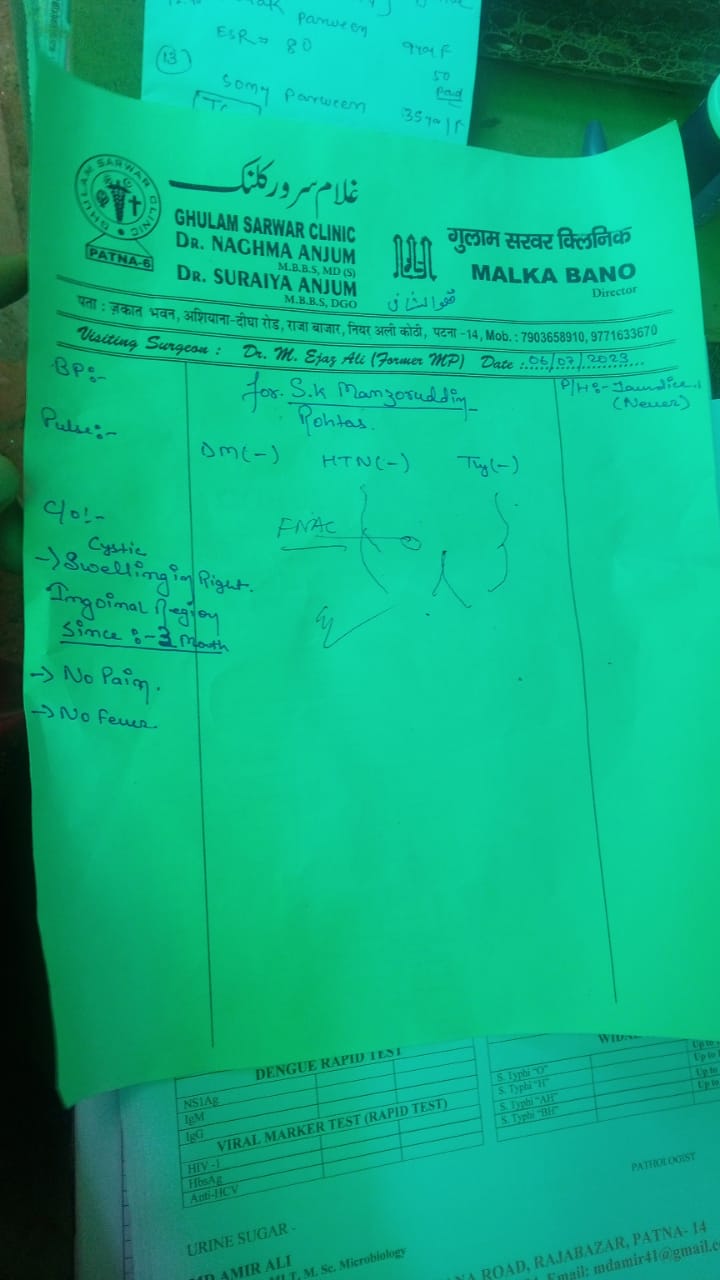 Parween
ESR = 80
9 year F
50
Paid
(13)
Somy Parween
35 yr / F
GHULAM SARWAR CLINIC
PATNA-6
غلام سرور کلنک
GHULAM SARWAR CLINIC
DR. NAGHMA ANJUM
M.B.B.S, MD (S)
DR. SURAIYA ANJUM
M.B.B.S, DGO
गुलाम सरवर क्लिनिक
MALKA BANO
Director
هوالشافی
पता : ज़कात भवन, अशियाना-दीघा रोड, राजा बाजार, नियर अली कोठी, पटना -14, Mob. : 7903658910, 9771633670
Visiting Surgeon : Dr. M. Ejaz Ali (Former MP) Date : 06/07/2023
BP:-
for. S.K Manzoruddin
P/H:- Jaundice
(Never)
Rohtas.
Pulse:-
DM(-) HTN(-)
C/O:-
FNAC
Cystic
→ Swelling in Right.
Ingoinal Region
Since :- 3 Month
→ No Pain.
→ No Fever
DENGUE RAPID TEST
NS1Ag
IgM
IgG
VIRAL MARKER TEST (RAPID TEST)
HIV -1
HbsAg
Anti-HCV
S. Typhi "O"
S. Typhi "H"
S. Typhi "AH"
S. Typhi "BH"
Up to
Up to
Up to
PATHOLOGIST
URINE SUGAR -
MD AMIR ALI
M. Sc. Microbiology
ROAD, RAJABAZAR, PATNA- 14
Email: mdamir41@gmail.c